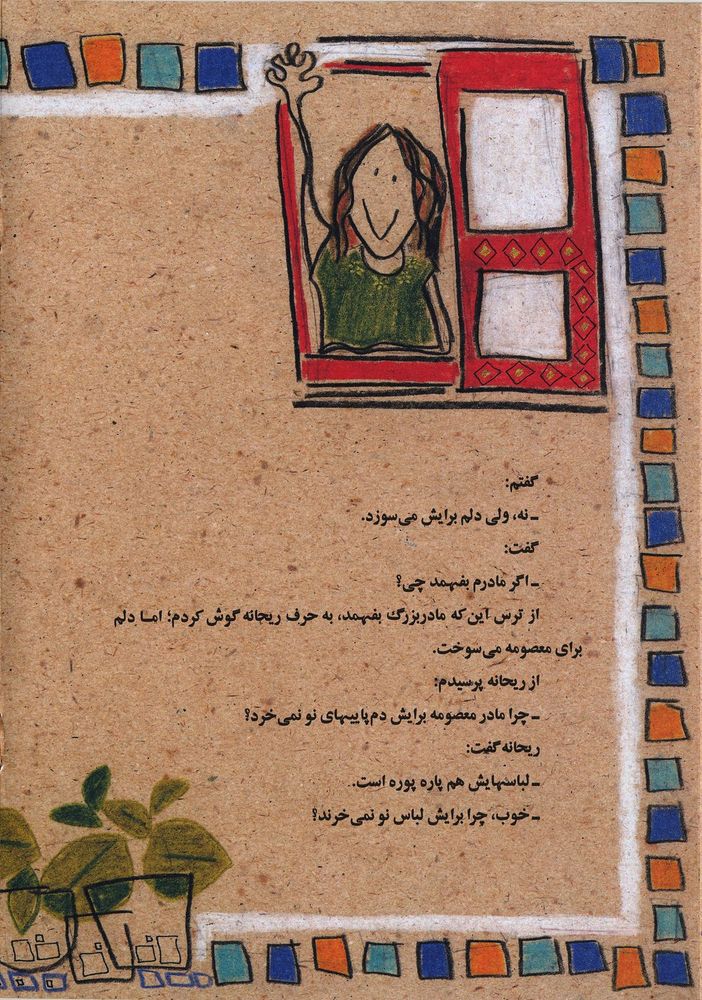 گفتم:
ـ نه، ولی دلم برایش می‌سوزد.
گفت:
ـ اگر مادرم بفهمد چی؟
از ترس این‌که مادربزرگ بفهمد، به حرف ریحانه گوش کردم؛ اما دلم
برای معصومه می‌سوخت.
از ریحانه پرسیدم:
ـ چرا مادر معصومه برایش دم‌پاییهای نو نمی‌خرد؟
ریحانه گفت:
ـ لباسهایش هم پاره پوره است.
ـ خوب، چرا برایش لباس نو نمی‌خرند؟